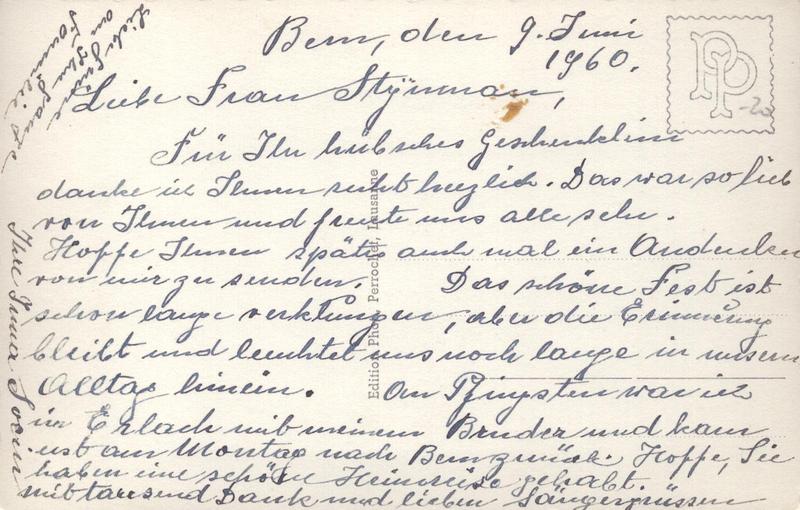 Bern, den 9. Juni
1960.
Liebe Frau Stynman,
Für Ihr hübsches Geschenklein
danke ich Ihnen recht herzlich. Das war so lieb
von Ihnen und freute uns alle sehr.
Hoffe Ihnen später auch mal ein Andenken
von mir zu senden. Das schöne Fest ist
schon lange verklungen, aber die Erinnerung
bleibt und leuchtet uns noch lange in unsern
Alltag hinein. An Pfingsten war ich
in Erlach mit meinem Bruder und kam
erst am Montag nach Bern zurück. Hoffe, Sie
haben eine schöne Heimreise gehabt.
mit tausend Dank und lieben Sängergrüssen
Ihre Irma Socin
Liebe Grüsse
an Ihre ganze
Familie
Edition Phot. Perrochet, Lausanne
PP
-20